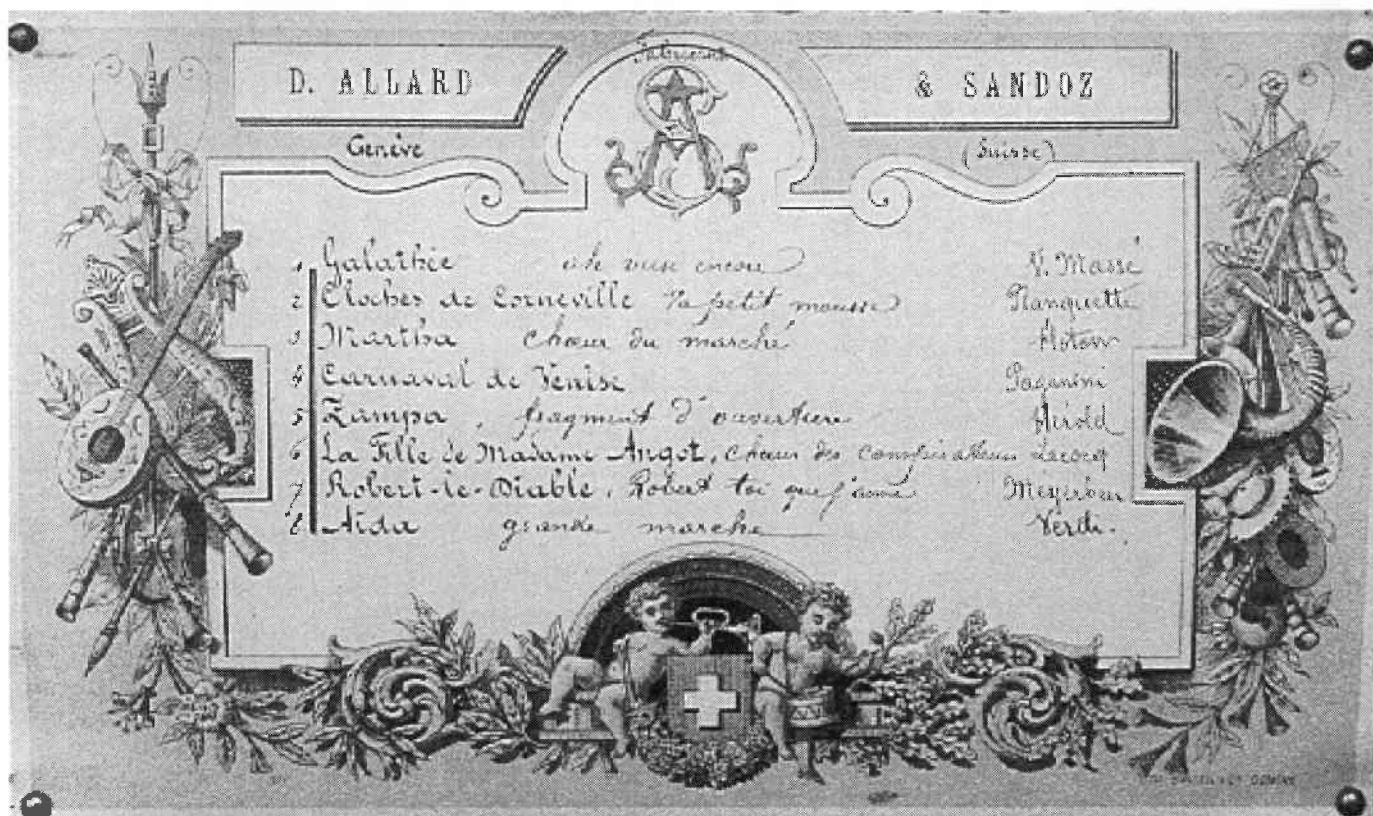 D. ALLARD & SANDOZ
Fabricants
Genève (Suisse)
1 Galathée ah verse encore V. Massé
2 Cloches de Corneville Va petit mousse Planquette
3 Martha chœur du marché Flotow
4 Carnaval de Venise Paganini
5 Zampa, fragment d'ouverture Hérold
6 La Fille de Madame Angot, chœur des conspirateurs Lecocq
7 Robert-le-Diable, Robert toi que j'aime Meyerbeer
8 Aida grande marche Verdi.